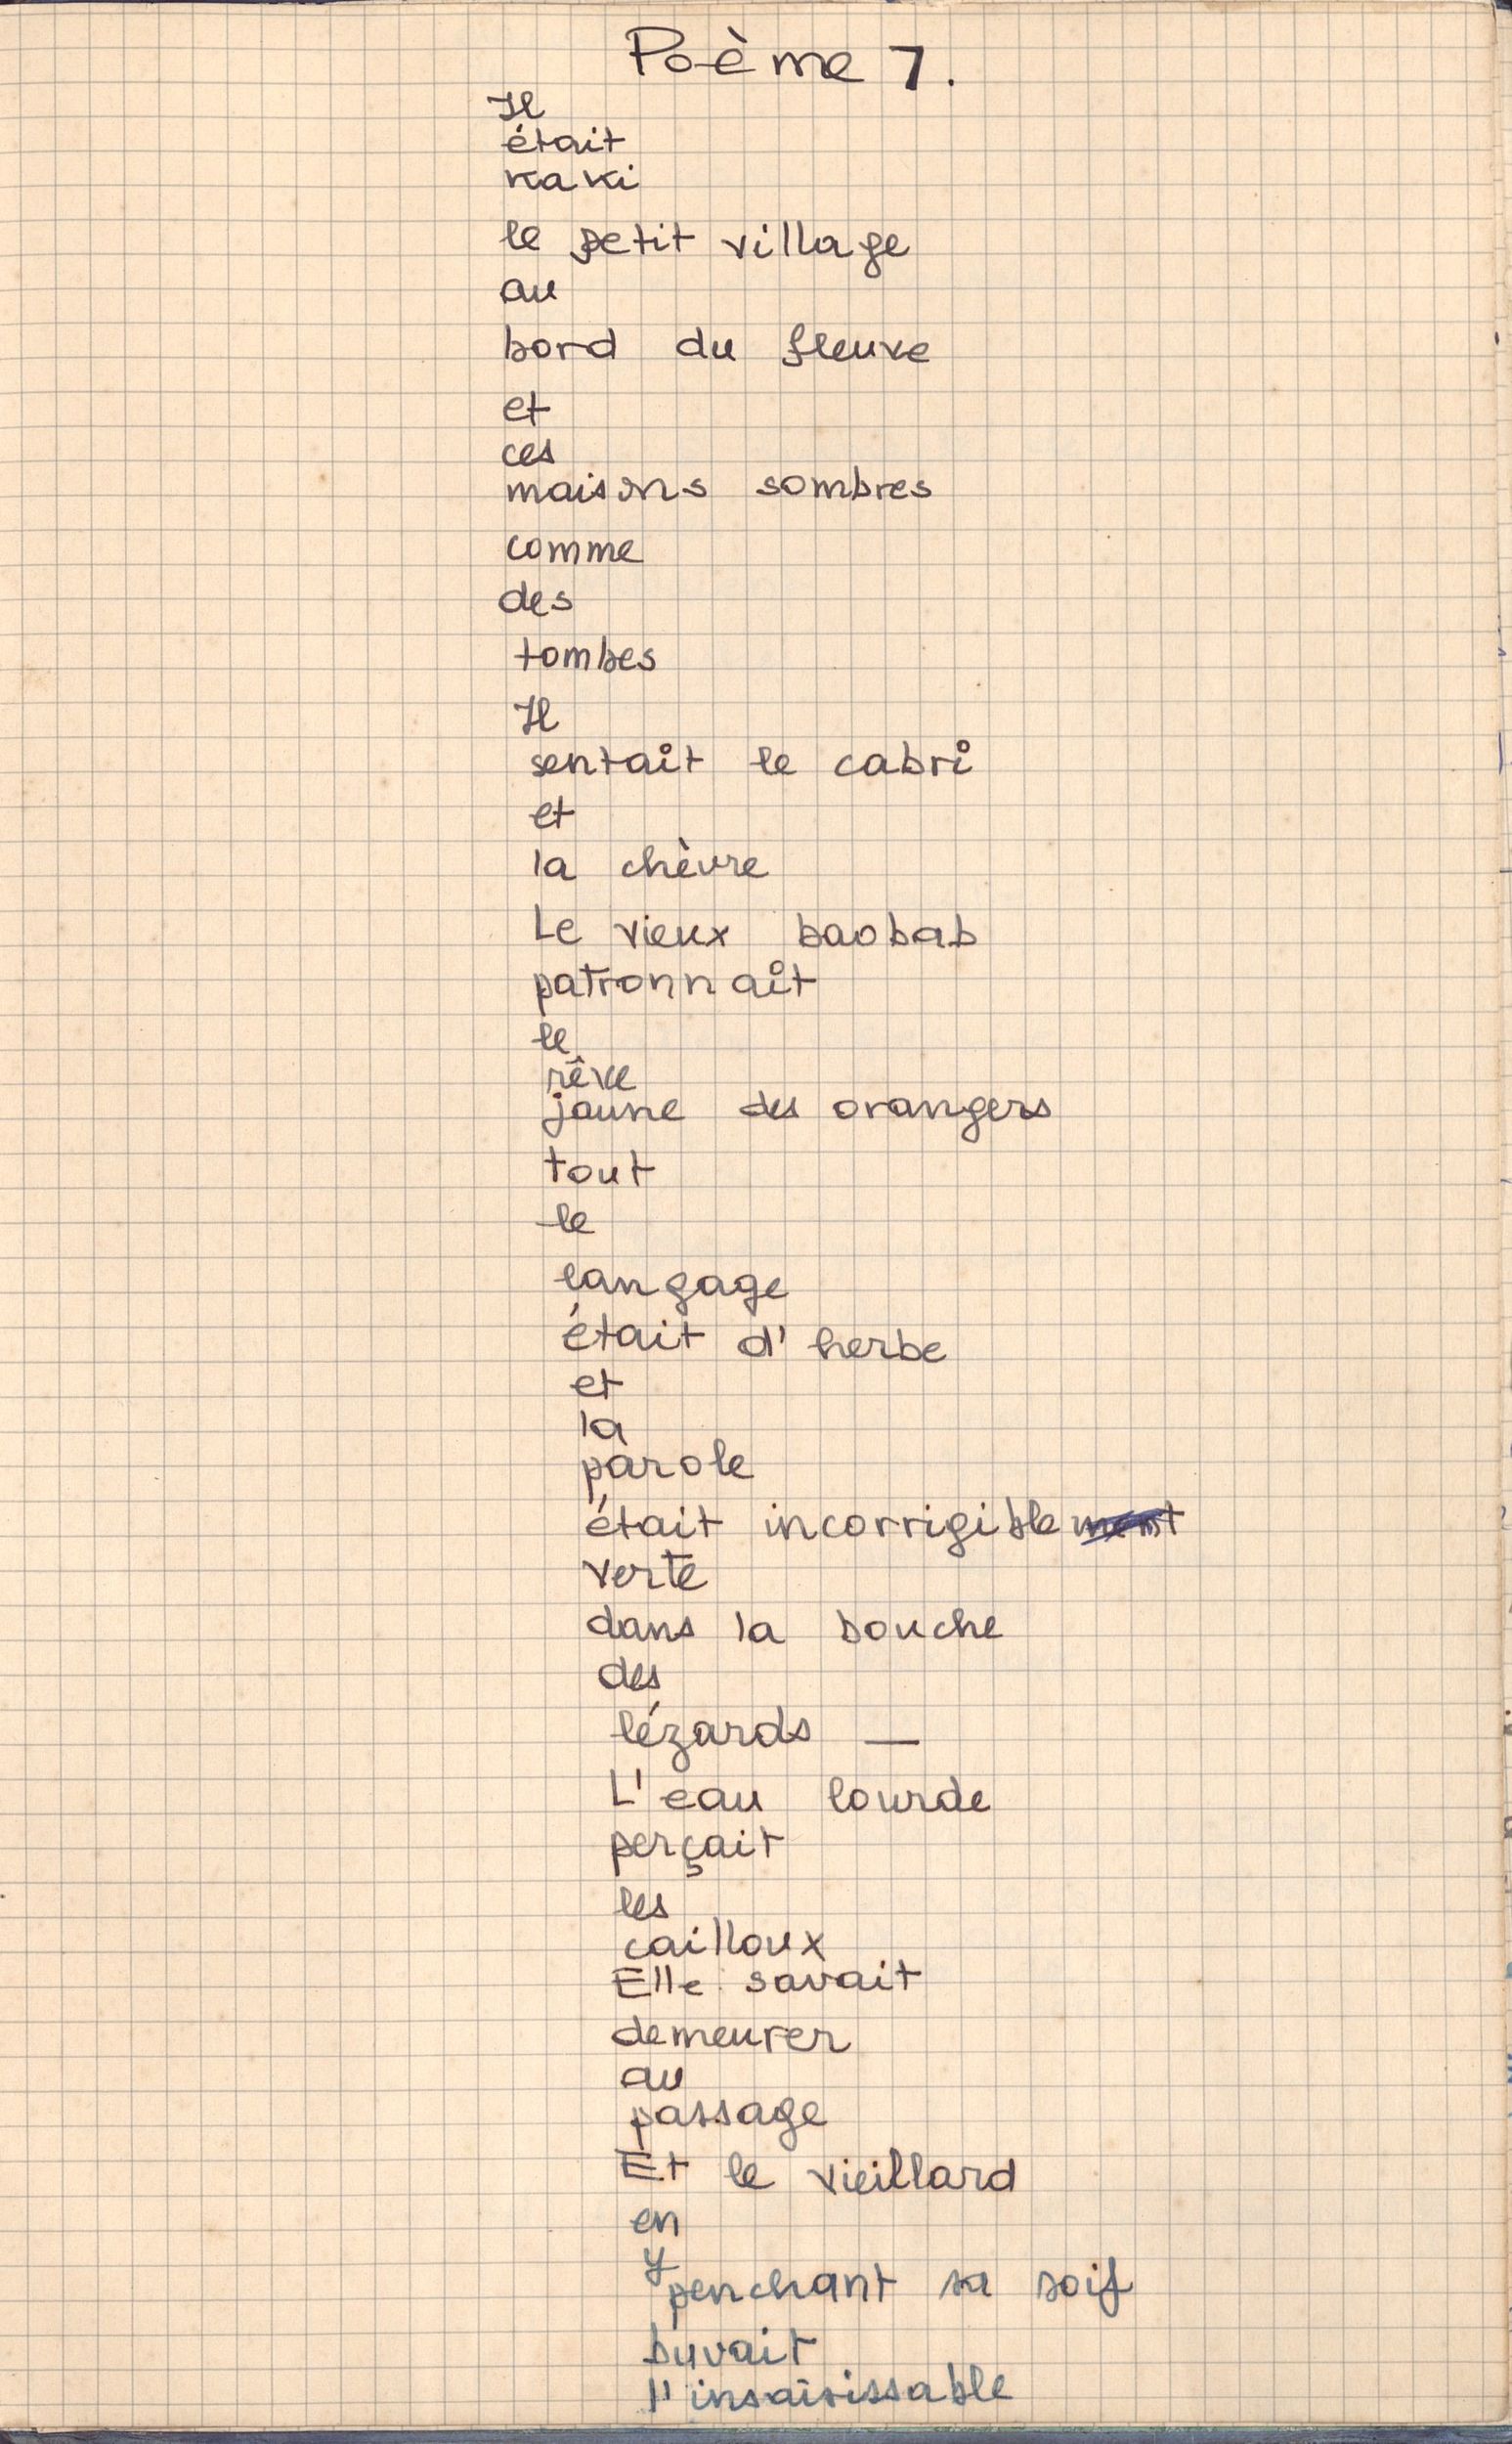 Poème 7.
Il
était
kaki
le petit village
au
bord du fleuve
et
ces
maisons sombres
comme
des
tombes
Il
sentait le cabri
et
la chèvre
Le vieux baobab
patronnait
le
rêve
jaune des orangers
tout
le
langage
était d'herbe
et
la
parole
était incorrigiblement
verte
dans la bouche
des
lézards —
L'eau lourde
perçait
les
cailloux
Elle savait
demeurer
au
passage
Et le vieillard
en
y
penchant sa soif
buvait
l'insaisissable